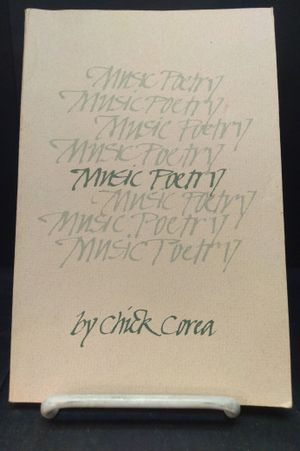 Music Poetry
Music Poetry
Music Poetry
Music Poetry
Music Poetry
Music Poetry
Music Poetry
Music Poetry
by Chick Corea